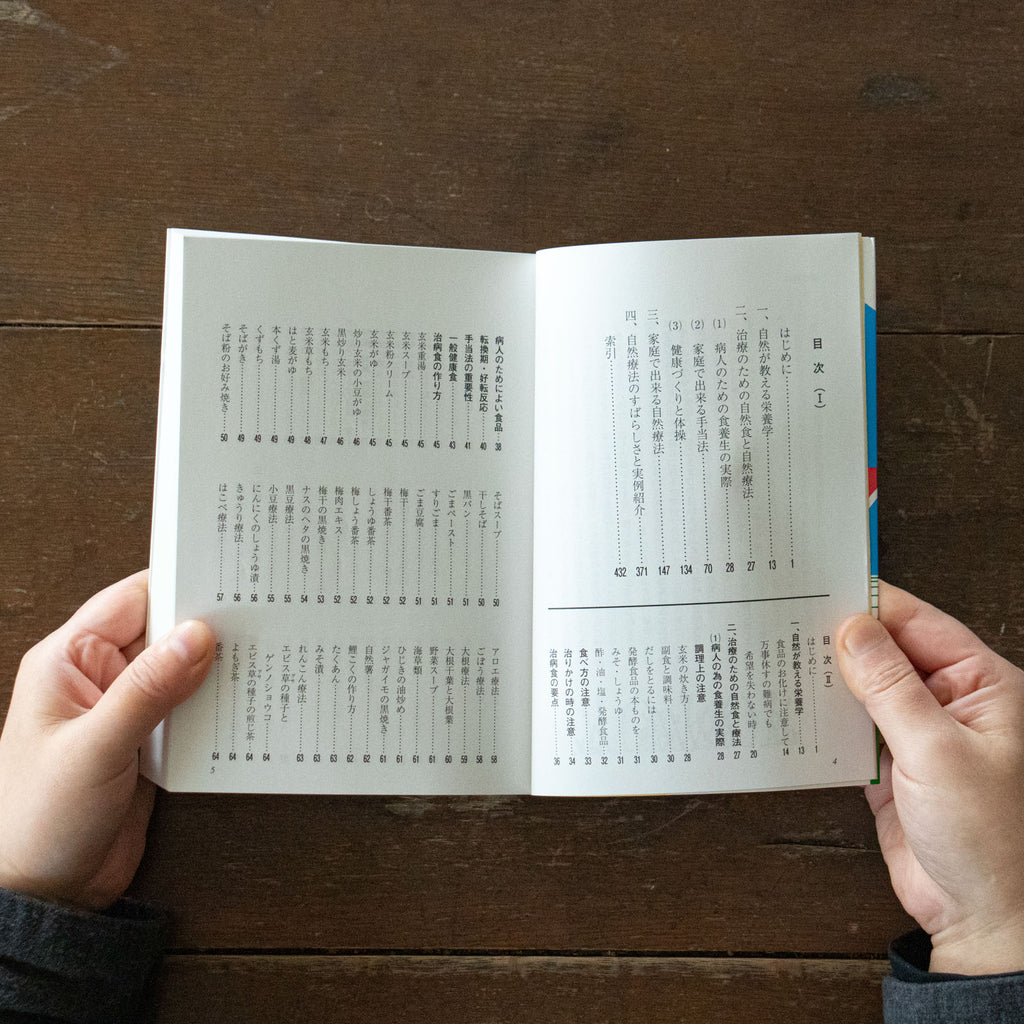 目次（Ⅰ）
はじめに……1
一、自然が教える栄養学……13
二、治療のための自然食と自然療法……27
(1) 病人のための食養生の実際……28
(2) 家庭で出来る手当法……70
(3) 健康づくりと体操……134
三、家庭で出来る自然療法……147
四、自然療法のすばらしさと実例紹介……371
索引……432
目次（Ⅱ）
はじめに……1
一、自然が教える栄養学……13
食品のお化けに注意して……14
万事休すの難病でも
希望を失わない時……20
二、治療のための自然食と療法……27
(1)病人の為の食養生の実際……28
調理上の注意
玄米の炊き方……28
副食と調味料……30
だしをとるには……30
発酵食品の本ものを……31
みそ・しょうゆ……31
酢・油・塩・発酵食品……32
食べ方の注意……33
治りかけの時の注意……34
治病食の要点……36
4
病人のためによい食品……38
転換期・好転反応……40
手当法の重要性……41
一般健康食……43
治病食の作り方
玄米重湯……45
玄米スープ……45
玄米粉クリーム……45
玄米がゆ……45
炒り玄米の小豆がゆ……46
黒炒り玄米……46
玄米もち……47
玄米草もち……48
はと麦がゆ……49
本くず湯……49
くずもち……49
そばがき……49
そば粉のお好み焼き……50
そばスープ……50
干しそば……50
黒パン……51
ごまペースト……51
すりごま……51
ごま豆腐……51
梅干……52
梅干番茶……52
しょうゆ番茶……52
梅しょう番茶……52
梅肉エキス……52
梅干の黒焼き……53
ナスのヘタの黒焼き……54
黒豆療法……55
小豆療法……55
にんにくのしょうゆ漬……56
きゅうり療法……56
はこべ療法……57
アロエ療法……58
ごぼう療法……58
大根療法……59
大根干葉と大根葉……60
野菜スープ……61
海草類……61
ひじきの油炒め……61
ジャガイモの黒焼き……61
自然薯……62
鯉こくの作り方……62
たくあん……63
みそ漬……63
れんこん療法……63
エビス草の種子と
ゲンノショウコ……64
エビス草の種子の煎じ茶……64
よもぎ茶……64
番茶……64
5